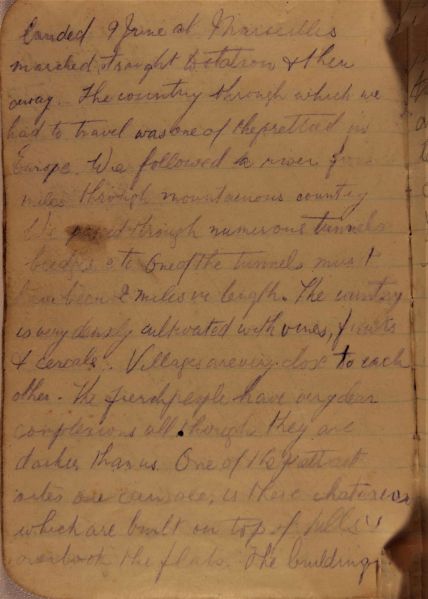 Landed 9 June at Marseilles
marched straight to station & then
away. The country through which we
had to travel was one of the prettiest in
Europe. We followed a river for
miles through mountaenous country
We passed through numerous tunnels
bridges etc One of the tunnels must
have been 2 miles in length. The country
is very densly cultivated with vines, fruits
& cereals. Villages are very close to each
other. The french people have very clear
complexions all though they are
darker than us One of the prettiest
sites one can see, is these chateaus
which are built on top of hills &
overlook the flats. The buildings